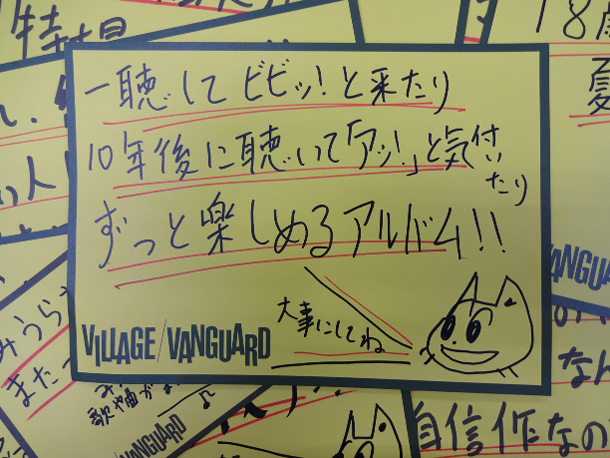 一聴して ビビッ!と来たり
10年後に聴いて「アッ!」と気付いたり
ずっと楽しめるアルバム!!
大事にしてね
VILLAGE/VANGUARD
特
18
夏
人
みうら
また
歌や曲が
VANGUARD
VANGUA
なん
自信作なの